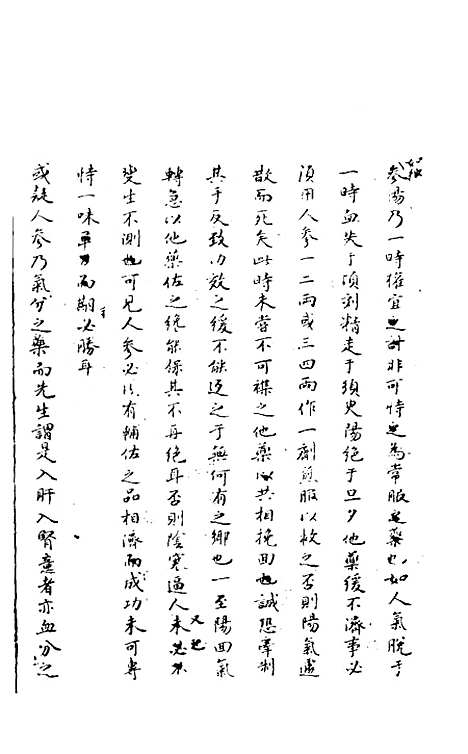 參湯乃一時權宜之計非可恃之為常服之藥也如人氣脫于
一時血失于頃刻精走于須臾陽絕于旦夕他藥緩不濟事必
須用人參一二兩或三四兩作一劑煎服以救之否則陽氣遽
散而死矣此時未嘗不可襍之他藥以共相挽回也誠恐牽制
其手反致功效之緩不能返之于無何有之鄉也一至陽回氣
轉急以他藥佐之纔能保其不再絕耳否則陰寒逼人又恐未必不
變生不測也可見人參必須有輔佐之品相濟而成功未可專
恃一味單方而期必勝耳
或疑人參乃氣分之藥而先生謂是入肝入腎意者亦血分之